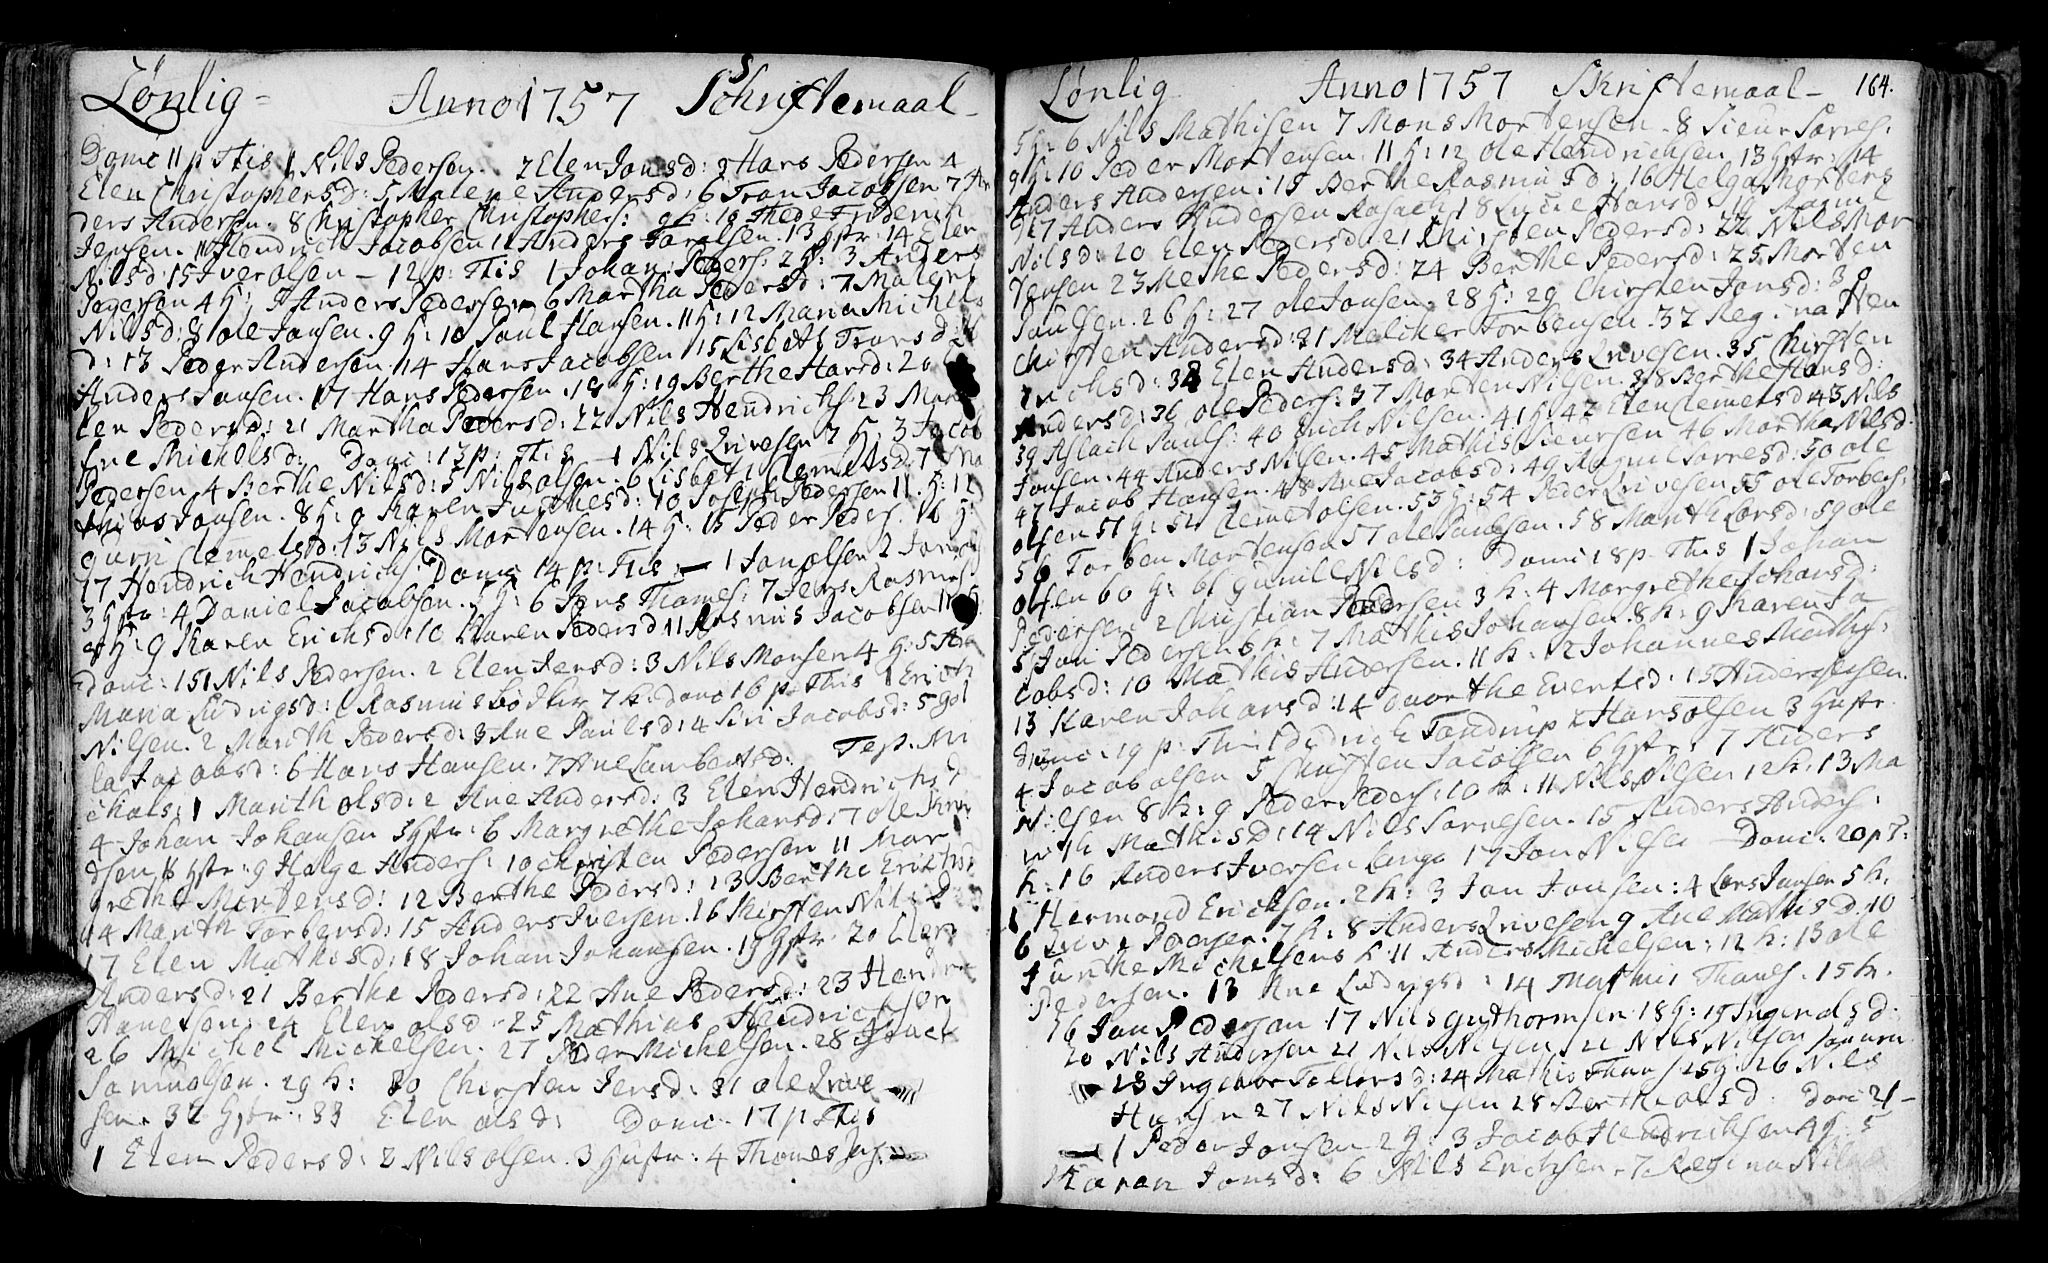 Lønlig = Anno 1757 Schriftemaal -
Domc 11 p. Ttis 1 Nils Pedersen. 2 Elen Jonsd: 3 Hans Pedersen 4
Elen Christophersd: 5 Malene Andersd: 6 Tron Jacobsen 7 An
ders Andersen. 8 Christopher Christophers: 9 K: 10 Thede Friderich
Jensen. 11 Hendrich Jacobsen 12 Anders Toralsen. 13 Hstr: 14 Elen
Nilsd: 15 Iver Olsen - 12 p: Ttis 1 Johan Peders: 2 H: 3 Anders
Pedersen 4 H: 5 Anders Pedersen 6 Martha Pedersd: 7 Malene
Nilsd: 8 Ole Jonsen. 9 H: 10 Paul Hansen. 11 H: 12 Maria Michels
d: 13 Peder Andersen. 14 Hans Jacobsen 15 Lisbeth Tronsd: 16
Anders Jonsen. 17 Hans Pedersen. 18 H: 19 Berthe Hansd: 20
len Pedersd: 21 Martha Pedersd: 22 Nils Hendrichs: 23 Mar
Ane Michelsd: Domc: 13 p: Ttis 1 Nils Qvivesen 2 H: 3 Jacob
Pedersen 4 Berthe Nilsd: 5 Nils Olsen. 6 Lisbet Clemetsd: 7 Ma
thias Jonsen. 8 H: 9 Karen Jurthesd: 10 Joseph Pedersen 11 H: 12
Gurri Clemetsd: 13 Nils Mortensen. 14 H: 15 Peder Peders. 16 H:
17 Hendrich Hendrichs: Domc 14 p: Ttis 1 Jon Olsen 2 Jon
3 Hstr: 4 Daniel Jacobsen. 5 H: 6 Jens Thomes: 7 Jens Rasmus
8 H: 9 Karen Erichsd: 10 Karen Pedersd 11 Rasmus Jacobsen 12
Domc: 15 1 Nils Pedersen. 2 Elen Jensd: 3 Nils Monsen 4 H: 5 An
Maria Ludvigsd: 6 Rasmus Bødker 7 K: Domc 16 p. Ttis 1 Erich
Nilsen. 2 Marith Pedersd: 3 Ane Paulsd: 4 Siri Jacobsd: 5 Gol
la Jacobsd: 6 Hans Hansen. 7 Ane Lambertsd: Fest. Mi
chals: 1 Marith Olsd: 2 Ane Andersd: 3 Elen Hendrichsd
4 Johan Johansen 5 Hstr: 6 Margrethe Johansd: 7 Ole
dsen 8 Hstr: 9 Helge Anders: 10 Christen Pedersen 11 Mar
grethe Mortensd: 12 Berthe Pedersd: 13 Berthe Erichsd
14 Marith Torbensd: 15 Anders Iversen. 16 Kirsten
17 Elen Mathisd: 18 Johan Johansen. 19 Hstr 20 Elen
Andersd: 21 Berthe Pedersd: 22 Ane Pedersd: 23 Hendr
Hansen 24 Elen Olsd: 25 Mathias Hendrichsen
26 Michel Michelsen. 27 Peder Michelsen. 28 Isach
Samuelsen. 29 K: 30 Chirsten Jensd: 31 Ole Qvive
sen. 32 Hstr: 33 Elen Olsd: Domc. 17 p. Ttis
1 Elen Pedersd: 2 Nils Olsen. 3 Hustr: 4 Thomes
Lønlig Anno 1757 Skriftemaal - 164.
5 H: 6 Nils Mathisen 7 Mons Mortensen. 8 Sieur Torres:
9 K: 10 Peder Mortensen. 11 H: 12 Ole Hendrichsen 13 Hstr: 14
Anders Andersen: 15 Berthe Rasmusd: 16 Helga Mortens
17 Anders Andersen 18 Lucie Hansd 19
Nilsd: 20 Elen Pedersd: 21 Chirsten Pedersd: 22 Nils Mor
tensen 23 Methe Pedersd: 24 Berthe Pedersd: 25 Morten
Paulsen. 26 H: 27 Ole Jonsen. 28 H: 29 Chirsten Jonsd: 30
Chirsten Andersd: 31 Melcher Torbensen. 32 Regina Hen
richsd: 33 Elen Andersd: 34 Anders Qvivesen. 35 Chirsten
Andersd: 36 Ole Peders: 37 Morten Nilsen. 38 Berthe Hansd:
39 Aslach Pauls: 40 Erich Nilsen. 41 H: 42 Elen Clemetsd 43 Nils
Jonsen: 44 Anders Nilsen. 45 Mathis Sieursen 46 Martha Nilsd
47 Jacob Hansen. 48 Ane Jacobsd: 49 Ragnil Torresd: 50 Ole
Olsen 51 H: 52 Clemet Olsen. 53 H: 54 Peder Qvivesen 55 Ole Torbens:
56 Torben Mortensen 57 Ole Paulsen. 58 Marith Larsd: 59 Ole
Olsen 60 H: 61 Gunild Nilsd: Domc 18 p. Ttis 1 Johan
Pedersen: 2 Christian Pedersen 3 K: 4 Margrethe Johansd:
5 Jon Pedersen 6 K: 7 Mathis Johansen. 8 K: 9 Karen Ja
cobsd: 10 Mathis Andersen. 11 K. 12 Johannes Mathis:
13 Karen Johansd: 14 Daarthe Evertsd: 15 Anders
Domc: 19 p: Ttis 1 Didrich Tandrup 2 Hans Olsen 3 Hustr.
4 Jacob Olsen 5 Chirsten Jacobsen 6 Hstr: 7 Anders
Nilsen 8 K: 9 Peder Peders: 10 K: 11 Nils Nilsen 12 K: 13 Ma
rith Mathisd: 14 Nils Torresen. 15 Anders Anders:
K: 16 Anders Iversen Lange 17 Jon Nilsen Domc. 20 p T:
1 Hermond Erichsen. 2 K: 3 Jon Jonsen: 4 Lars Jonsen 5 K.
6 Qvive Iversen. 7 K: 8 Anders Qvivesen 9 Ane Mathisd. 10
Michelsens K: 11 Anders Michelsen: 12 K: 13 Ole
Pedersen. 13 Ane Ludvigsd: 14 Mathis Thomes. 15 K.
16 Jon Pedersen 17 Nils Guthormsen 18 H: 19 Inger Olsd:
20 Nils Andersen 21 Nils Nilsen 22 Nils Nilsen
23 Ingebor Tollersd: 24 Mathis Thomes 25 H: 26 Nils
Hansen 27 Nils Nilsen 28 Berthe Olsd. Domc 21 -
1 Peder Jonsen 2 H: 3 Jacob Hendrichsen 4 H: 5
Karen Jonsd: 6 Nils Erichsen. 7 Regina Nils